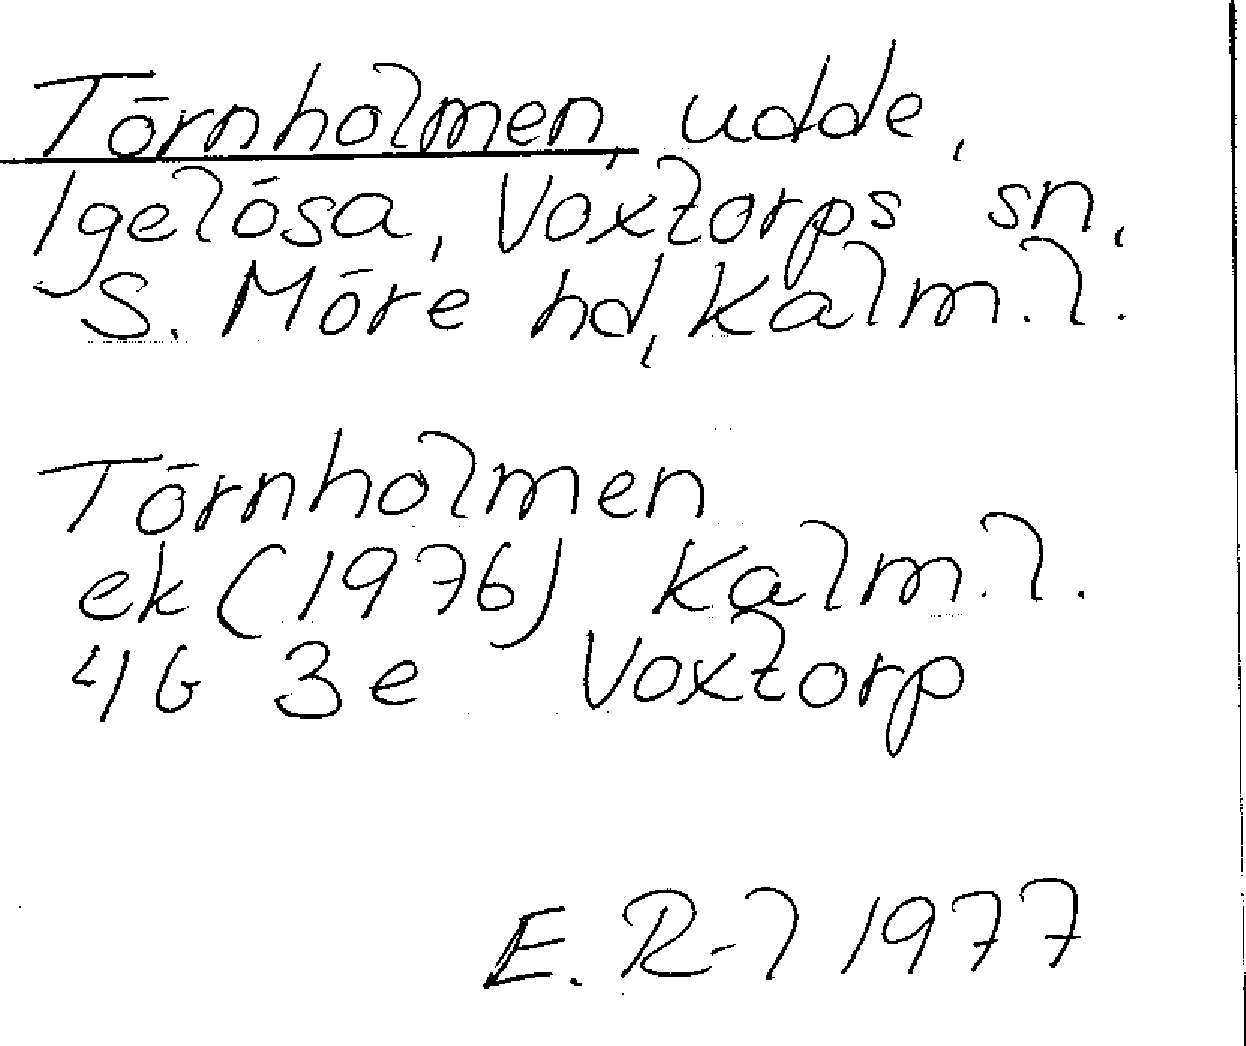 Törnholmen, udde,
Igelösa, Voxtorps sn,
S. Möre hd, Kalm. l.
Törnholmen
ek (1976) Kalm. l.
4G 3e Voxtorp
E. R-l 1977